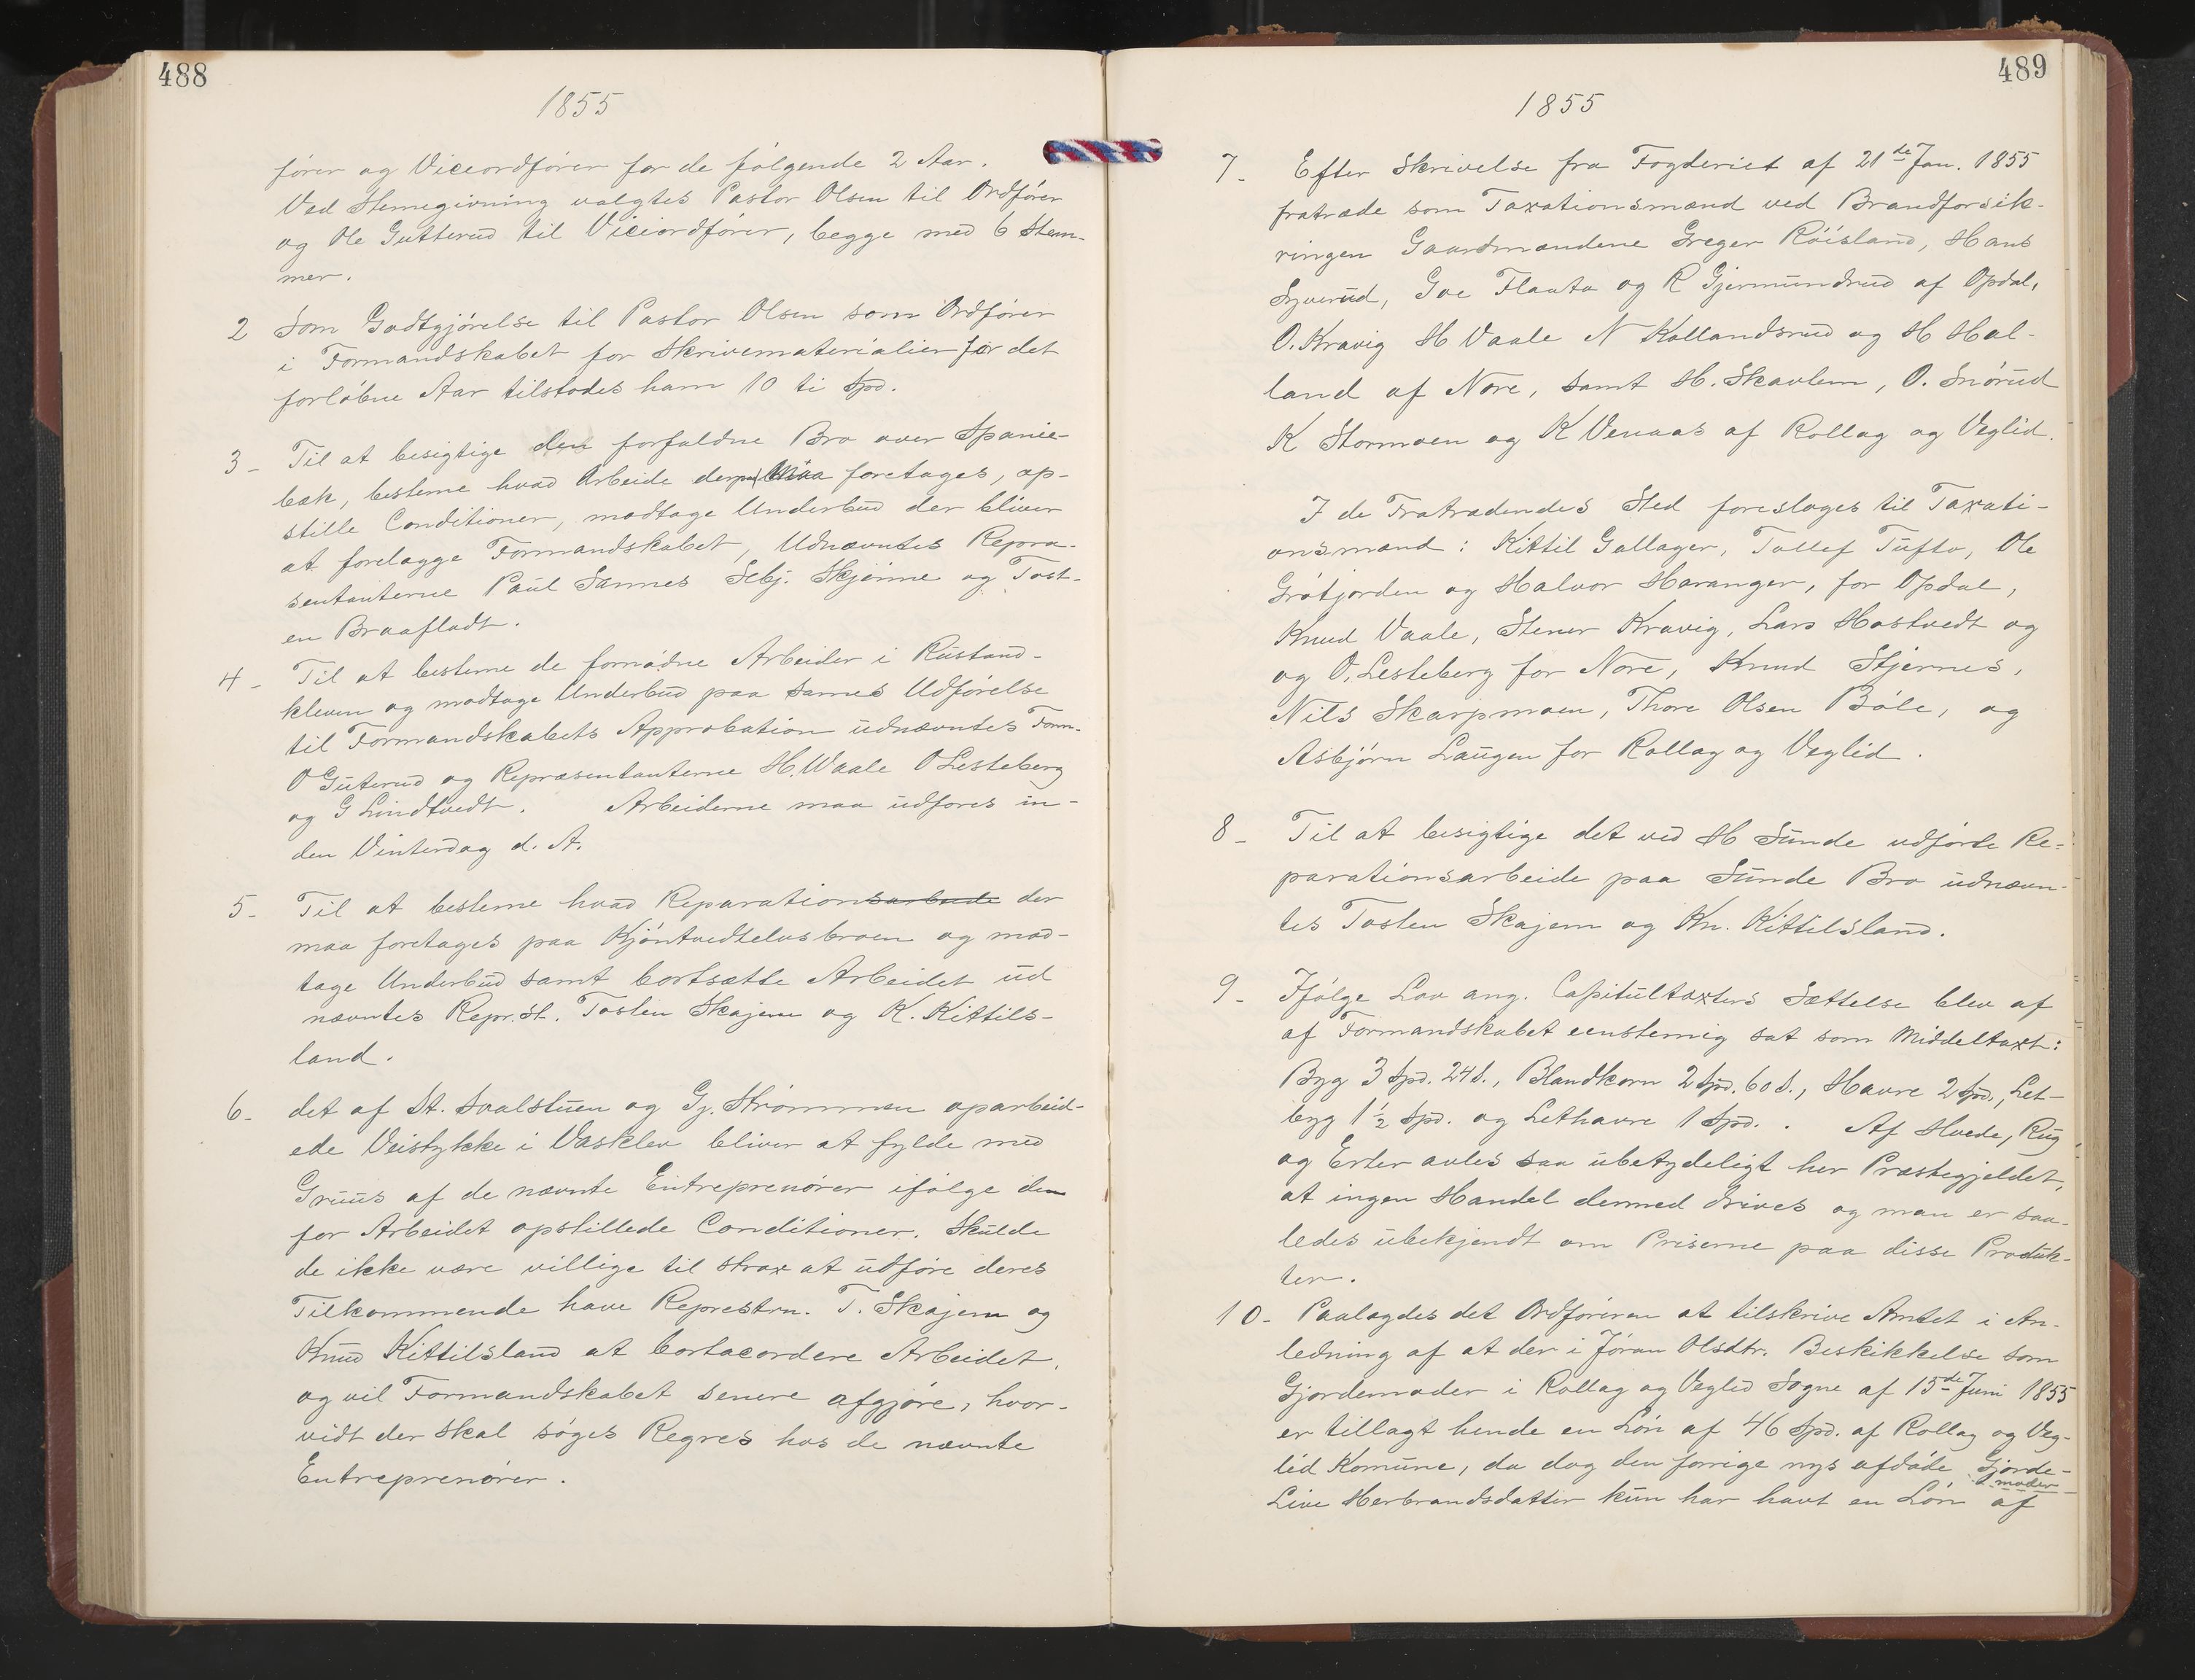 488
1855
fører og Viceordfører for de følgende 2 Aar.
Ved Stemegivning valgtes Pastor Olsen til Ordfører
og Ole Gutterud til Viciordfører, begge med 6 Stem-
mer.
2 Som Godtgjørelse til Pastor Olsen som Ordfører
i Formandskabet for Skrivematerialier for det
forløbne Aar tilstodes ham 10 ti Spd.
3 - Til at besigtige den forfaldne Bro over Spanie-
bæk, besteme hvad Arbeide derpaa maa foretages, op-
stille Conditioner, modtage Underbud der bliver
at forelægge Formandskabet, Udnævntes Repræ-
sentanterne Paul Sannes Sebj. Skjønne og Tost-
en Braafladt.
4 - Til at besteme de fornødne Arbeider i Rustand-
kleven og modtage Underbud paa sames Udførelse
til Formandskabets Approbation udnævntes Form.
O Guterud og Repræsentanterne H. Waale O Lesteberg
og G Lindtvedt. Arbeiderne maa udføres in-
den Vinterdag d. A.
5 - Til at besteme hvad Reparationsarbeide der
maa foretages paa Kjøntvedtelvsbroen og mod-
tage Underbud samt bortsætte Arbeidet ud
nævntes Repr. St. Tosten Skajem og K. Kittils-
land.
6 - det af St. Soalstuen og Gj. Strømmen oparbeid-
ede Veistykke i Vasklev bliver at fylde med
Gruus af de nævnte Entreprenører ifølge den
for Arbeidet opstillede Conditioner. Skulde
de ikke være villige til strax at udføre deres
Tilkommende have Represtrn. T. Skajem og
Knud Kittilsland at bortacordere Arbeidet,
og vil Formandskabet senere afgjøre, hvor-
vidt der skal søges Regres hos de nævnte
Entreprenører.
489
1855
7 - Efter Skrivelse fra Fogderiet af 21de Jan. 1855
fratræde som Taxationsmænd ved Brandforsik-
ringen Gaardmændene Greger Røisland, Hans
Syverud, Goe Flaata og R Gjermundrud af Opdal,
O. Kravig H Vaale N Kollandsrud og H Hal-
land af Nore, samt H. Skavlem, O. Snørud
K Stormoen og K Venaas af Rollag og Veglid.
I de Fratrædendes Sted foreslages til Taxati-
onsmænd: Kittil Gallager, Tollef Tufto, Ole
Grøtjorden og Halvor Haranger, for Opdal,
Knud Vaale, Stener Kravig, Lars Hostvedt og
og O. Lesteberg for Nore, Knud Stjernes,
Nils Skarpmoen, Thore Olsen Bøle, og
Asbjørn Laugen for Rollag og Veglid.
8 - Til at besigtige det ved H Sunde udførte Re-
parationsarbeide paa Sunde Bro udnævn-
tes Tosten Skajem og Kn. Kittilsland.
9 - Ifølge Lov ang. Capitultaxters Sættelse blev af
af Formandskabet eenstemig sat som Middeltaxt:
Byg 3 Spd. 24 s., Blandkorn 2 Spd. 60 s., Havre 2 Spd., Let-
byg 1 1/2 Spd. og Lethavre 1 Spd. . Af Hvede, Rug
og Erter avles saa ubetydeligt her Præstegjeldet,
at ingen Handel dermed drives og man er saa-
ledes ubekjendt om Priserne paa disse Produk-
ter.
10 - Paalagdes det Ordføreren at tilskrive Amtet i An-
ledning af at der i Jøran Olsdtr. Beskikkelse som
Gjordemoder i Rollag og Veglid Sogne af 15de Juni 1855
er tillagt hende en Løn af 46 Spd. af Rollag og Veg-
lid Komune, da dog den forrige nys afdøde Gjorde-
moder
Live Herbrandsdatter kun har havt en Løn af